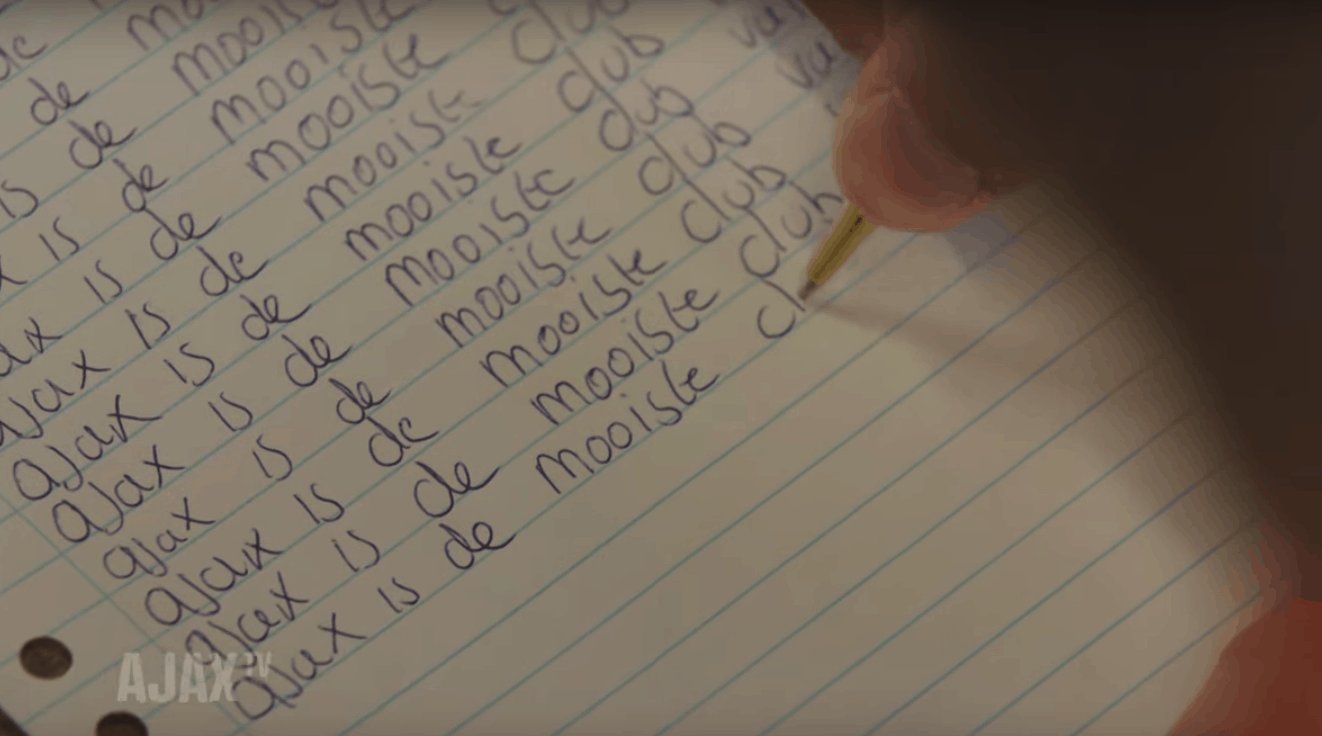 de
de
is de mooiste
is de mooiste
is de mooiste
ajax is de mooiste club
ajax is de mooiste club
ajax is de mooiste club
ajax is de mooiste club
ajax is de mooiste club
ajax is de mooiste club
ajax is de mooiste cl
AJAX TV